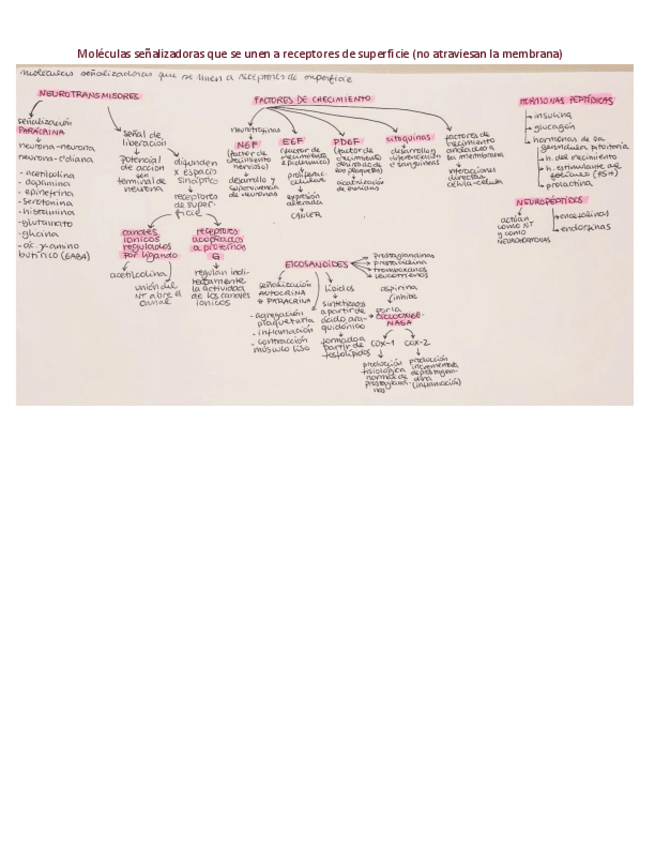 Moléculas señalizadoras que se unen a receptores de superficie (no atraviesan la membrana)
moléculas señalizadoras que se unen a receptores de superficie
NEUROTRANSMISORES
señalización
PARACRINA
neurona-neurona
neurona-c'diana
- acetilcolina
- dopamina
- epinefrina
- serotonina
- histamina
- glutamato
- glicina
- ác. γ-amino
butírico (GABA)
señal de
liberación
potencial
de acción
en
terminal de
neurona
difunden
x espacio
sináptico
receptores
de super-
ficie
canales
iónicos
regulados
por ligando
acetilcolina
unión del
NT abre el
canal
receptores
acoplados
a proteínas
G
regulan indi-
rectamente
la actividad
de los canales
iónicos
FACTORES DE CRECIMIENTO
neurotropina
NGF
(factor de
crecimiento
nervioso)
desarrollo y
supervivencia
de neuronas
EGF
(factor de
crecimiento
epidérmico)
proliferac.
celular
expresión
alterada
CÁNCER
PDGF
(factor de
crecimiento
derivado de
las plaquetas)
cicatrización
de heridas
citoquinas
desarrollo y
diferenciación
c' sanguíneas
factores de
crecimiento
anclados a
la membrana
interacciones
directas
célula-célula
EICOSANOIDES
prostaglandinas
prostaciclina
tromboxanos
leucotrienos
señalización
AUTOCRINA
o PARACRINA
- agregación
plaquetaria
- inflamación
- contracción
músculo liso
lípidos
sintetizados
a partir de
ácido ara-
quidónico
formado a
partir de
fosfolípidos
aspirina
inhibe
por la
CICLOOXIGE-
NASA
COX-1
COX-2
producción
fisiológica
normal de
prostaglandi-
nas
producción
incrementada
de prostaglan-
dina
(inflamación)
HORMONAS PEPTÍDICAS
insulina
glucagón
hormonas de la
glándula pituitaria
h. del crecimiento
h. estimulante del
folículo (FSH)
prolactina
NEUROPÉPTIDOS
actúan
como NT
y como
NEUROHORMONAS
encefalinas
endorfinas